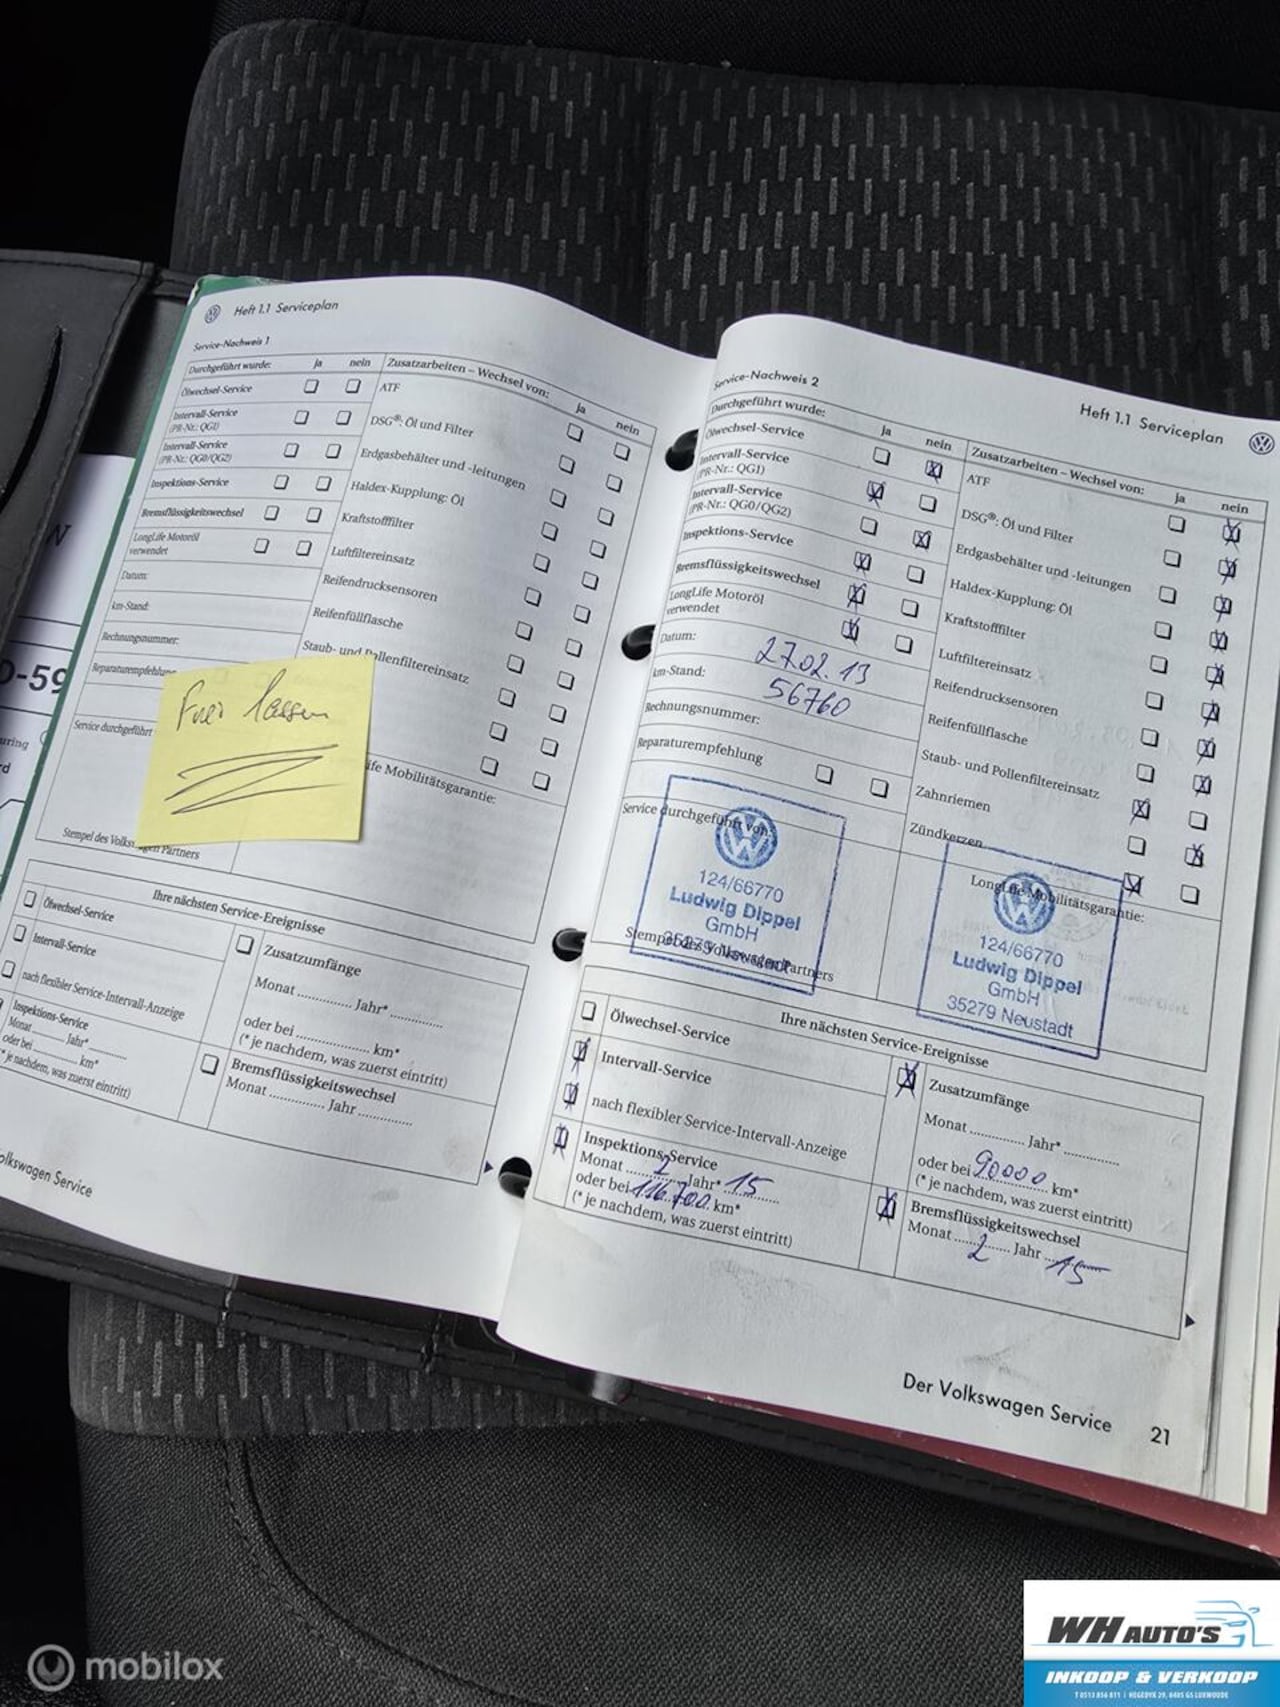 Heft 1.1 Serviceplan
Service-Nachweis 1
Durchgeführt wurde: ja nein
Ölwechsel-Service
Intervall-Service
(PR-Nr.: QG1)
Intervall-Service
(PR-Nr.: QG0/QG2)
Inspektions-Service
Bremsflüssigkeitswechsel
LongLife Motoröl
verwendet
Datum:
km-Stand:
Rechnungsnummer:
Reparaturempfehlung
Service durchgeführt
Stempel des Volkswagen Partners
Zusatzarbeiten – Wechsel von: ja nein
ATF
DSG®: Öl und Filter
Erdgasbehälter und -leitungen
Haldex-Kupplung: Öl
Kraftstofffilter
Luftfiltereinsatz
Reifendrucksensoren
Reifenfüllflasche
Staub- und Pollenfiltereinsatz
ife Mobilitätsgarantie:
Frei lassen
Ihre nächsten Service-Ereignisse
Ölwechsel-Service
Intervall-Service
nach flexibler Service-Intervall-Anzeige
Inspektions-Service
Monat ........ Jahr* ........
oder bei ............ km*
(* je nachdem, was zuerst eintritt)
Zusatzumfänge
Monat ............ Jahr* ............
oder bei ................ km*
(* je nachdem, was zuerst eintritt)
Bremsflüssigkeitswechsel
Monat ............ Jahr ............
olkswagen Service
Heft 1.1 Serviceplan
Service-Nachweis 2
Durchgeführt wurde: ja nein
Ölwechsel-Service
Intervall-Service
(PR-Nr.: QG1)
Intervall-Service
(PR-Nr.: QG0/QG2)
Inspektions-Service
Bremsflüssigkeitswechsel
LongLife Motoröl
verwendet
Datum: 27.02.13
km-Stand: 56760
Rechnungsnummer:
Reparaturempfehlung
Service durchgeführt von:
124/66770
Ludwig Dippel
GmbH
35279 Neustadt
Stempel des Volkswagen Partners
Zusatzarbeiten – Wechsel von: ja nein
ATF
DSG®: Öl und Filter
Erdgasbehälter und -leitungen
Haldex-Kupplung: Öl
Kraftstofffilter
Luftfiltereinsatz
Reifendrucksensoren
Reifenfüllflasche
Staub- und Pollenfiltereinsatz
Zahnriemen
Zündkerzen
LongLife Mobilitätsgarantie:
124/66770
Ludwig Dippel
GmbH
35279 Neustadt
Ihre nächsten Service-Ereignisse
Ölwechsel-Service
Intervall-Service
nach flexibler Service-Intervall-Anzeige
Inspektions-Service
Monat 2 Jahr* 15
oder bei 116700 km*
(* je nachdem, was zuerst eintritt)
Zusatzumfänge
Monat ............ Jahr* ............
oder bei 90000 km*
(* je nachdem, was zuerst eintritt)
Bremsflüssigkeitswechsel
Monat 2 Jahr 15
Der Volkswagen Service 21
W
O-59
uring
rd
mobilox
WH AUTO'S
INKOOP & VERKOOP
T 0513 856 811 | HEGEDYK 29, 8405 GS LUXWOUDE